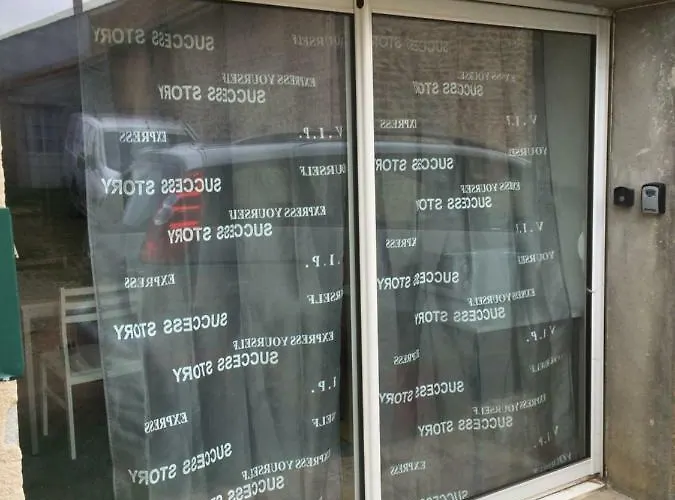 SUCCESS STORY
YOURSELF
SUCCESS STORY
EXPRESS YOURSELF
EXPRESS YOURSELF
SUCCESS STORY
SUCCESS STORY
V.I.P.
EXPRESS
V.I.P.
EXPRESS
YOURSELF
SUCCESS STORY
SUCCESS STORY
EXPRESS YOURSELF
SUCCESS STORY
EXPRESS YOURSELF
SUCCESS STORY
V.I.P.
EXPRESS
I.P.
YOURSELF
EXPRESS
SUCCESS STORY
EXPRESS YOURSELF
SUCCESS STORY
SUCCESS STORY
EXPRESS YOURSELF
V.I.P.
SUCCESS STORY
EXPRESS
YOURSELF
I.P.
SUCCESS STORY
EXPRESS YOURSELF
EXPRESS
SELF
SUCCESS STORY
V.I.P.
SUCCESS STORY
EXPRESS YOURSELF
EXPRESS
SUCCESS STORY